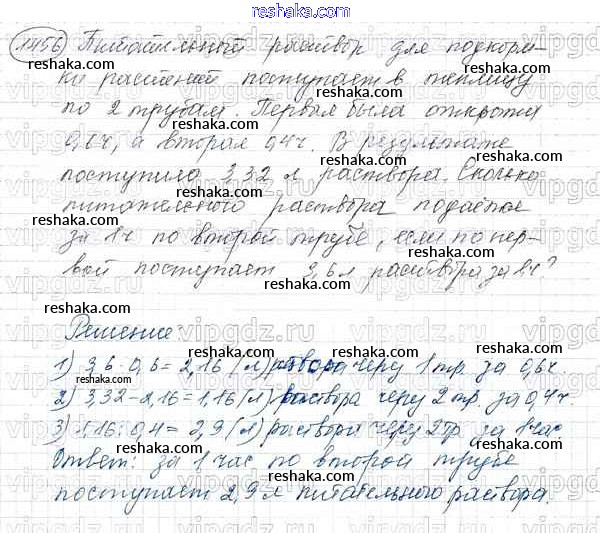 reshaka.ru
1456) Питательный раствор для подкорм-
ки растений поступает в теплицу
по 2 трубам. Первая была открыта
0,6 ч, а вторая 0,4 ч. В результате
поступило 3,32 л раствора. Сколько
питательного раствора подаётся
за 1 ч по второй трубе, если по пер-
вой поступает 3,6 л раствора за 1 ч?
Решение:
1) 3,6 · 0,6 = 2,16 (л) раствора через 1 тр. за 0,6 ч.
2) 3,32 - 2,16 = 1,16 (л) раствора через 2 тр. за 0,4 ч
3) 1,16 : 0,4 = 2,9 (л) раствора через 2 тр. за 1 час
Ответ: за 1 час по второй трубе
поступает 2,9 л питательного раствора.
reshaka.ru